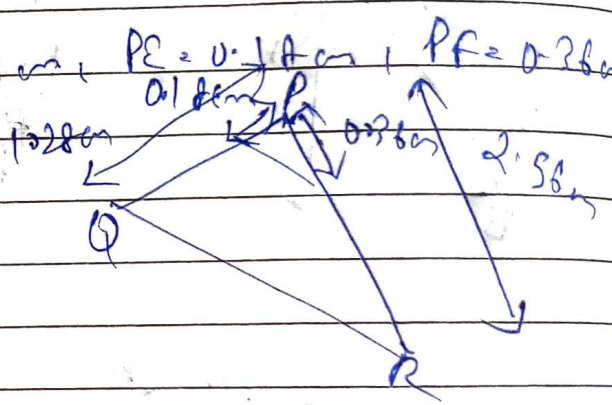 cm, PE = 0.18 cm, PF = 0.36 cm
0.18cm P
1.28cm 0.36cm 2.56cm
Q
R